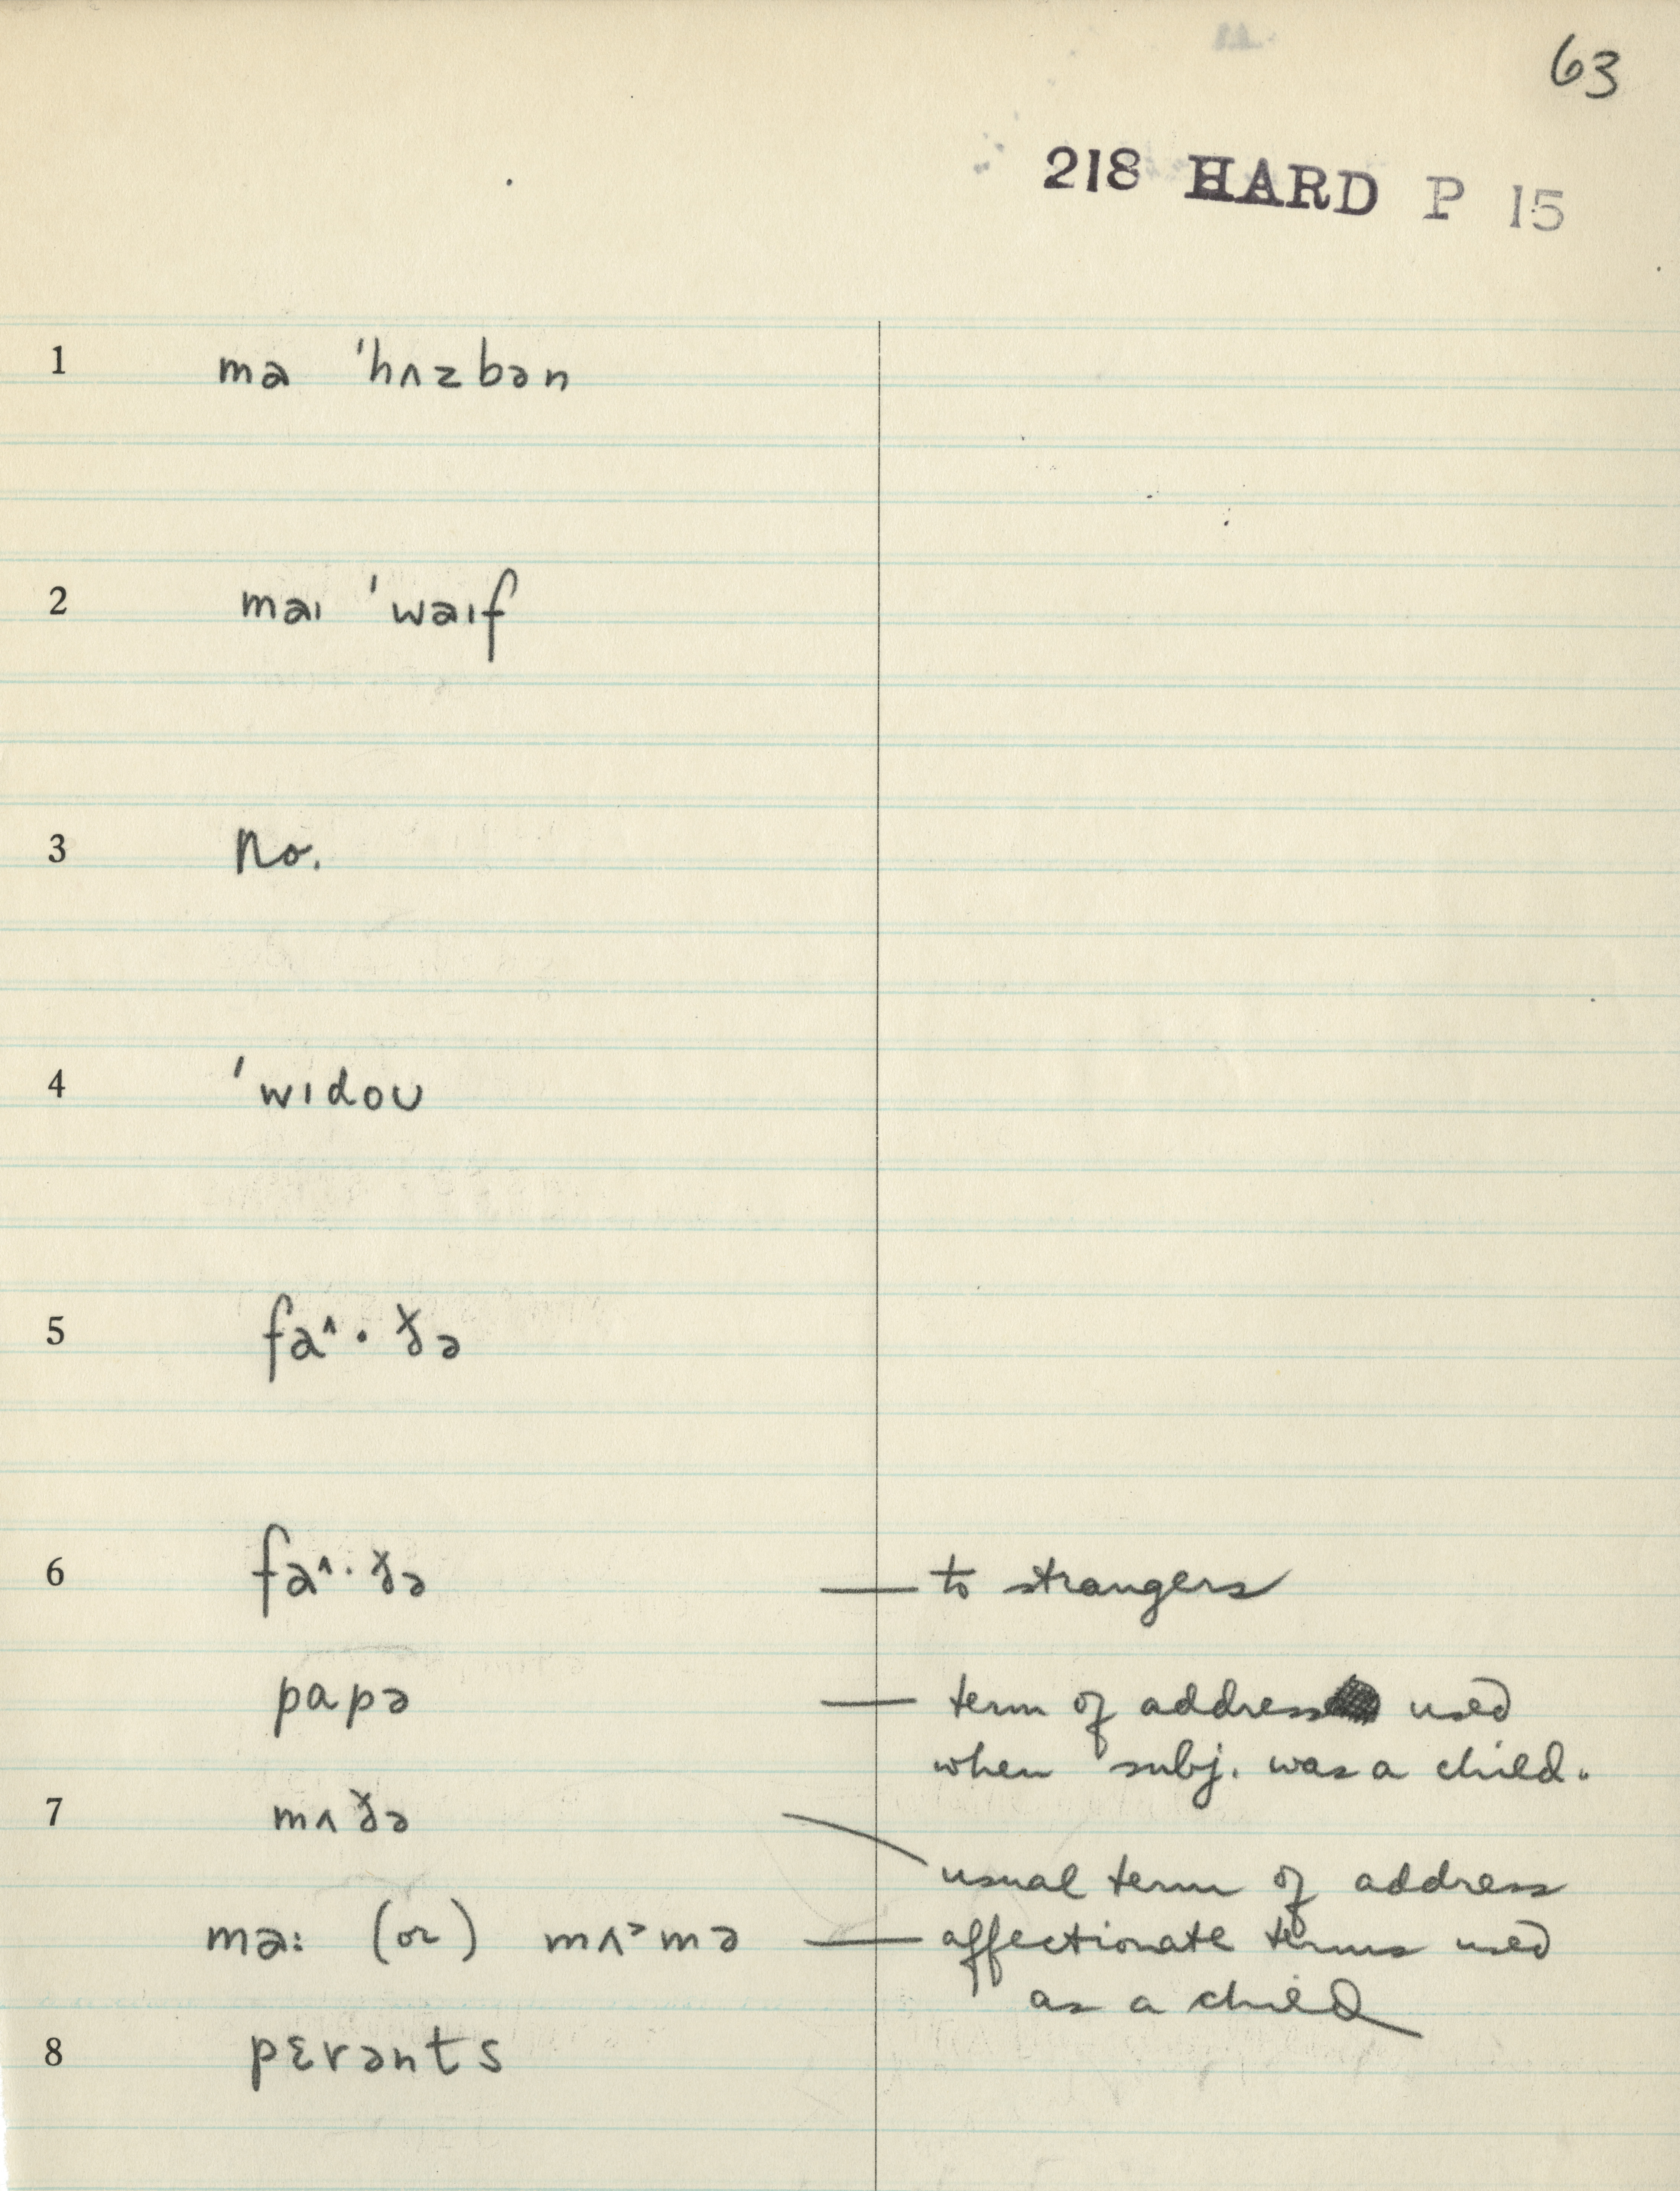 63
218 HARD P 15
1 ma 'hʌzbən
2 maɪ 'waɪf
3 No.
4 'wɪdoʊ
5 fa^·ɤ̌ə
6 fa^·ɤ̌ə — to strangers
papə — term of address used
when subj. was a child.
7 mʌɤ̌ə
usual term of address
ma: (or) mʌ˃mə — affectionate terms used
as a child
8 pɛrənts